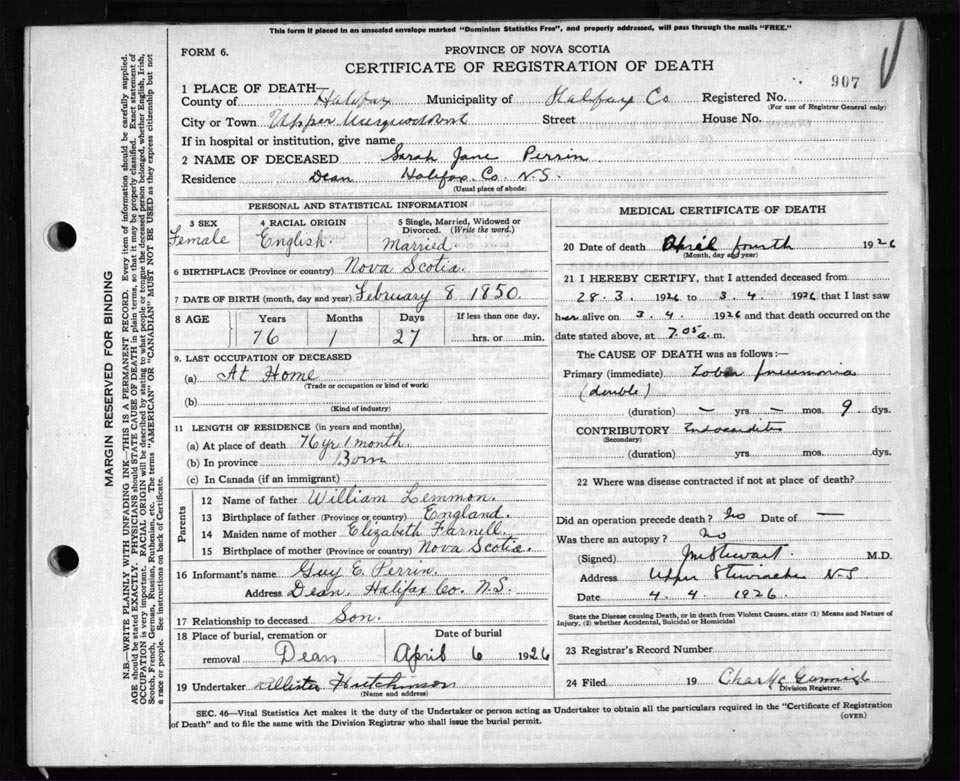 This form if placed in an unsealed envelope marked "Dominion Statistics Free", and properly addressed, will pass through the mails "FREE."
FORM 6.
PROVINCE OF NOVA SCOTIA
CERTIFICATE OF REGISTRATION OF DEATH
907
1 PLACE OF DEATH—
County of Halifax Municipality of Halifax Co Registered No.
(For use of Registrar General only)
City or Town Upper Musquodoboit Street House No.
If in hospital or institution, give name
2 NAME OF DECEASED Sarah Jane Perrin
Residence Dean Halifax Co. N.S.
(Usual place of abode)
PERSONAL AND STATISTICAL INFORMATION
3 SEX 4 RACIAL ORIGIN 5 Single, Married, Widowed or Divorced. (Write the word.)
Female English. Married.
6 BIRTHPLACE (Province or country) Nova Scotia.
7 DATE OF BIRTH (month, day and year) February 8 1850.
8 AGE Years Months Days If less than one day,
76 1 27 hrs. or min.
9. LAST OCCUPATION OF DECEASED
(a) At Home
(Trade or occupation or kind of work)
(b)
(Kind of industry)
11 LENGTH OF RESIDENCE (in years and months)
(a) At place of death 76 yr 1 month.
(b) In province Born
(c) In Canada (if an immigrant)
Parents
12 Name of father William Lemmon.
13 Birthplace of father (Province or country) England.
14 Maiden name of mother Elizabeth Farnell
15 Birthplace of mother (Province or country) Nova Scotia.
16 Informant's name Guy E. Perrin.
Address Dean, Halifax Co. N.S.
17 Relationship to deceased Son.
18 Place of burial, cremation or removal Dean Date of burial April 6 1926
19 Undertaker Allister Hutchinson
(Name and address)
MEDICAL CERTIFICATE OF DEATH
20 Date of death April fourth 1926
(Month, day and year)
21 I HEREBY CERTIFY, that I attended deceased from
28.3. 1926 to 3.4. 1926 that I last saw
her alive on 3.4. 1926 and that death occurred on the
date stated above, at 7.05 a.m.
The CAUSE OF DEATH was as follows:—
Primary (immediate) Lobar pneumonia
(double)
(duration) — yrs. — mos. 9 dys.
CONTRIBUTORY Endocarditis
(Secondary)
(duration) yrs. mos. dys.
22 Where was disease contracted if not at place of death?
Did an operation precede death? No Date of —
Was there an autopsy? No
(Signed) Stewart. M.D.
Address Upper Stewiacke N.S
Date 4.4. 1926.
State the Disease causing Death, or in death from Violent Causes, state (1) Means and Nature of
Injury, (2) whether Accidental, Suicidal or Homicidal
23 Registrar's Record Number
24 Filed 19
Division Registrar.
SEC. 46—Vital Statistics Act makes it the duty of the Undertaker or person acting as Undertaker to obtain all the particulars required in the "Certificate of Registration
of Death" and to file the same with the Division Registrar who shall issue the burial permit.
(OVER)
MARGIN RESERVED FOR BINDING
N.B.—WRITE PLAINLY WITH UNFADING INK—THIS IS A PERMANENT RECORD. Every item of information should be carefully supplied.
AGE should be stated EXACTLY. PHYSICIANS should STATE CAUSE OF DEATH in plain terms, so that it may be properly classified. Exact statement of
OCCUPATION is very important. RACIAL ORIGIN will be described by stating to what people or tongue the deceased person belonged, whether English, Irish,
Scotch, French, German, Russian, Ruthenian, etc. The terms "AMERICAN" or "CANADIAN" MUST NOT BE USED as they express citizenship but not
a race or people. See instructions on back of Certificate.